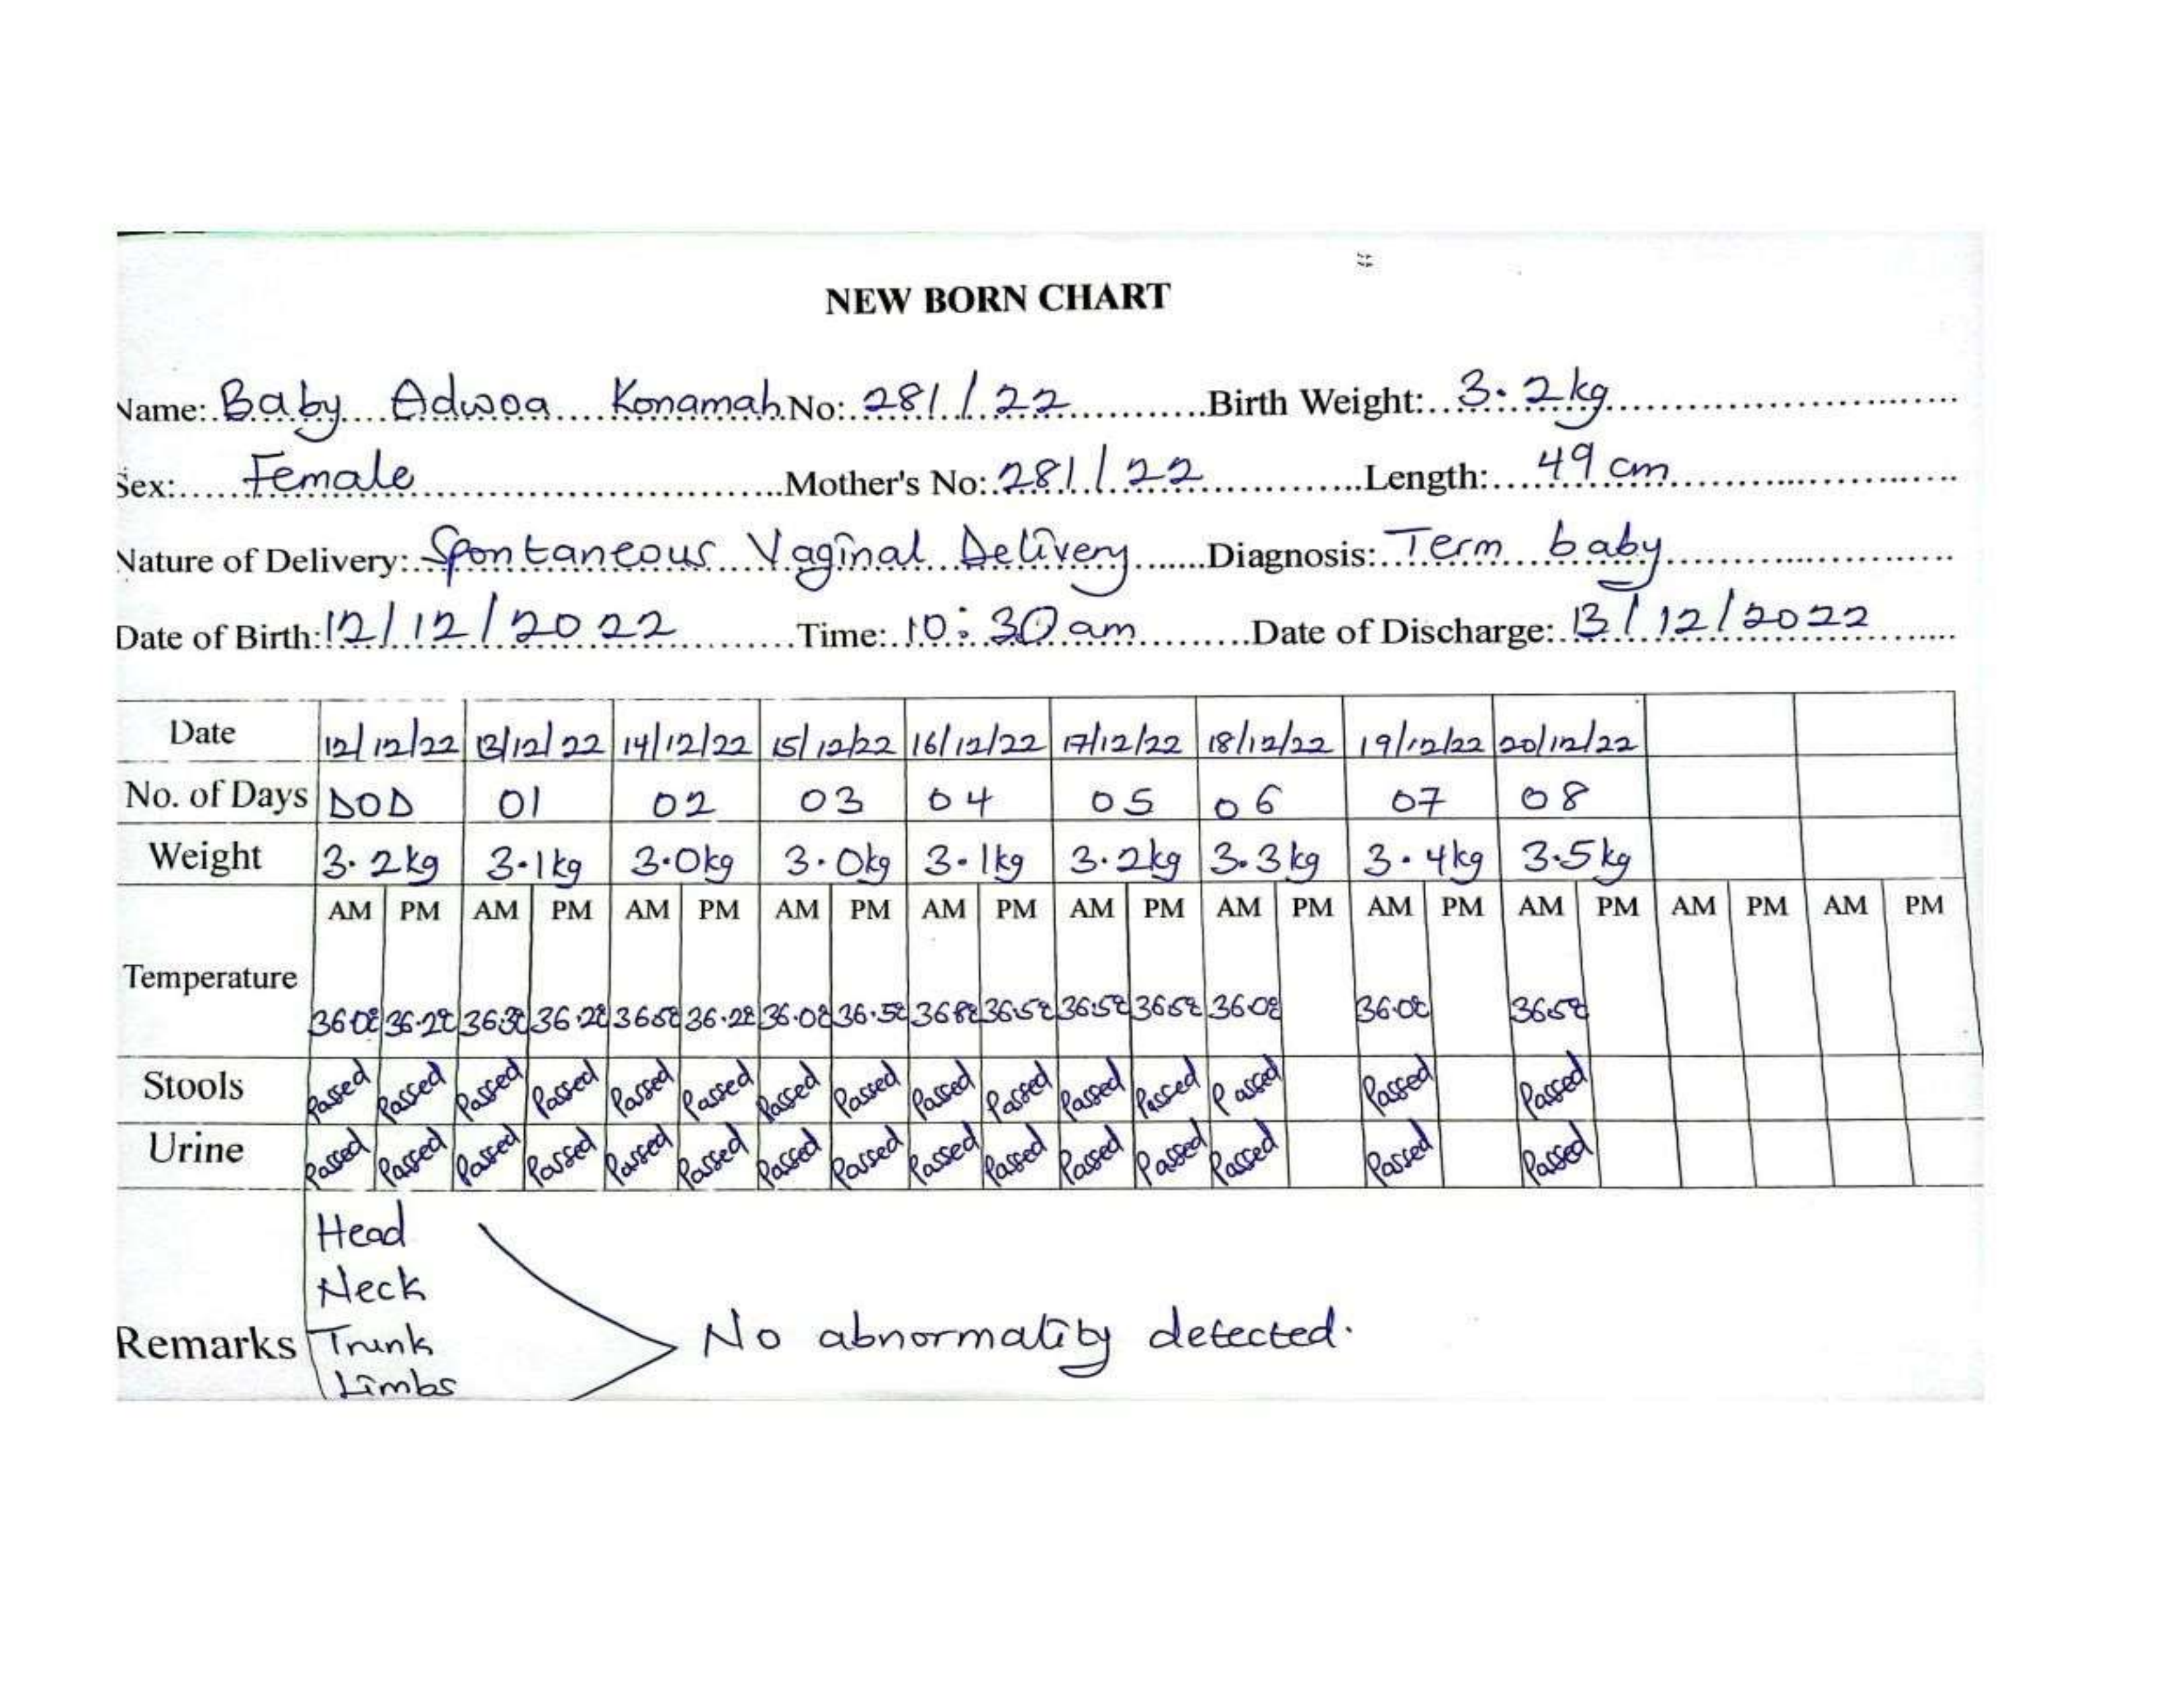 NEW BORN CHART
Name: Baby Adwoa Konamah No: 281/22 Birth Weight: 3.2kg
Sex: Female Mother's No: 281/22 Length: 49 cm
Nature of Delivery: Spontaneous Vaginal Delivery Diagnosis: Term baby
Date of Birth: 12/12/2022 Time: 10:30am Date of Discharge: 13/12/2022
Date 12/12/22 13/12/22 14/12/22 15/12/22 16/12/22 17/12/22 18/12/22 19/12/22 20/12/22
No. of Days DOD 01 02 03 04 05 06 07 08
Weight 3.2kg 3.1kg 3.0kg 3.0kg 3.1kg 3.2kg 3.3kg 3.4kg 3.5kg
AM PM AM PM AM PM AM PM AM PM AM PM AM PM AM PM AM PM AM PM AM PM
Temperature
36.0°c 36.2°c 36.3°c 36.2°c 36.5°c 36.2°c 36.0°c 36.5°c 36.8°c 36.5°c 36.5°c 36.5°c 36.0°c 36.0°c 36.5°c
Stools Passed Passed Passed Passed Passed Passed Passed Passed Passed Passed Passed Passed Passed Passed Passed
Urine Passed Passed Passed Passed Passed Passed Passed Passed Passed Passed Passed Passed Passed Passed Passed
Head
Neck
Remarks Trunk No abnormality detected.
Limbs